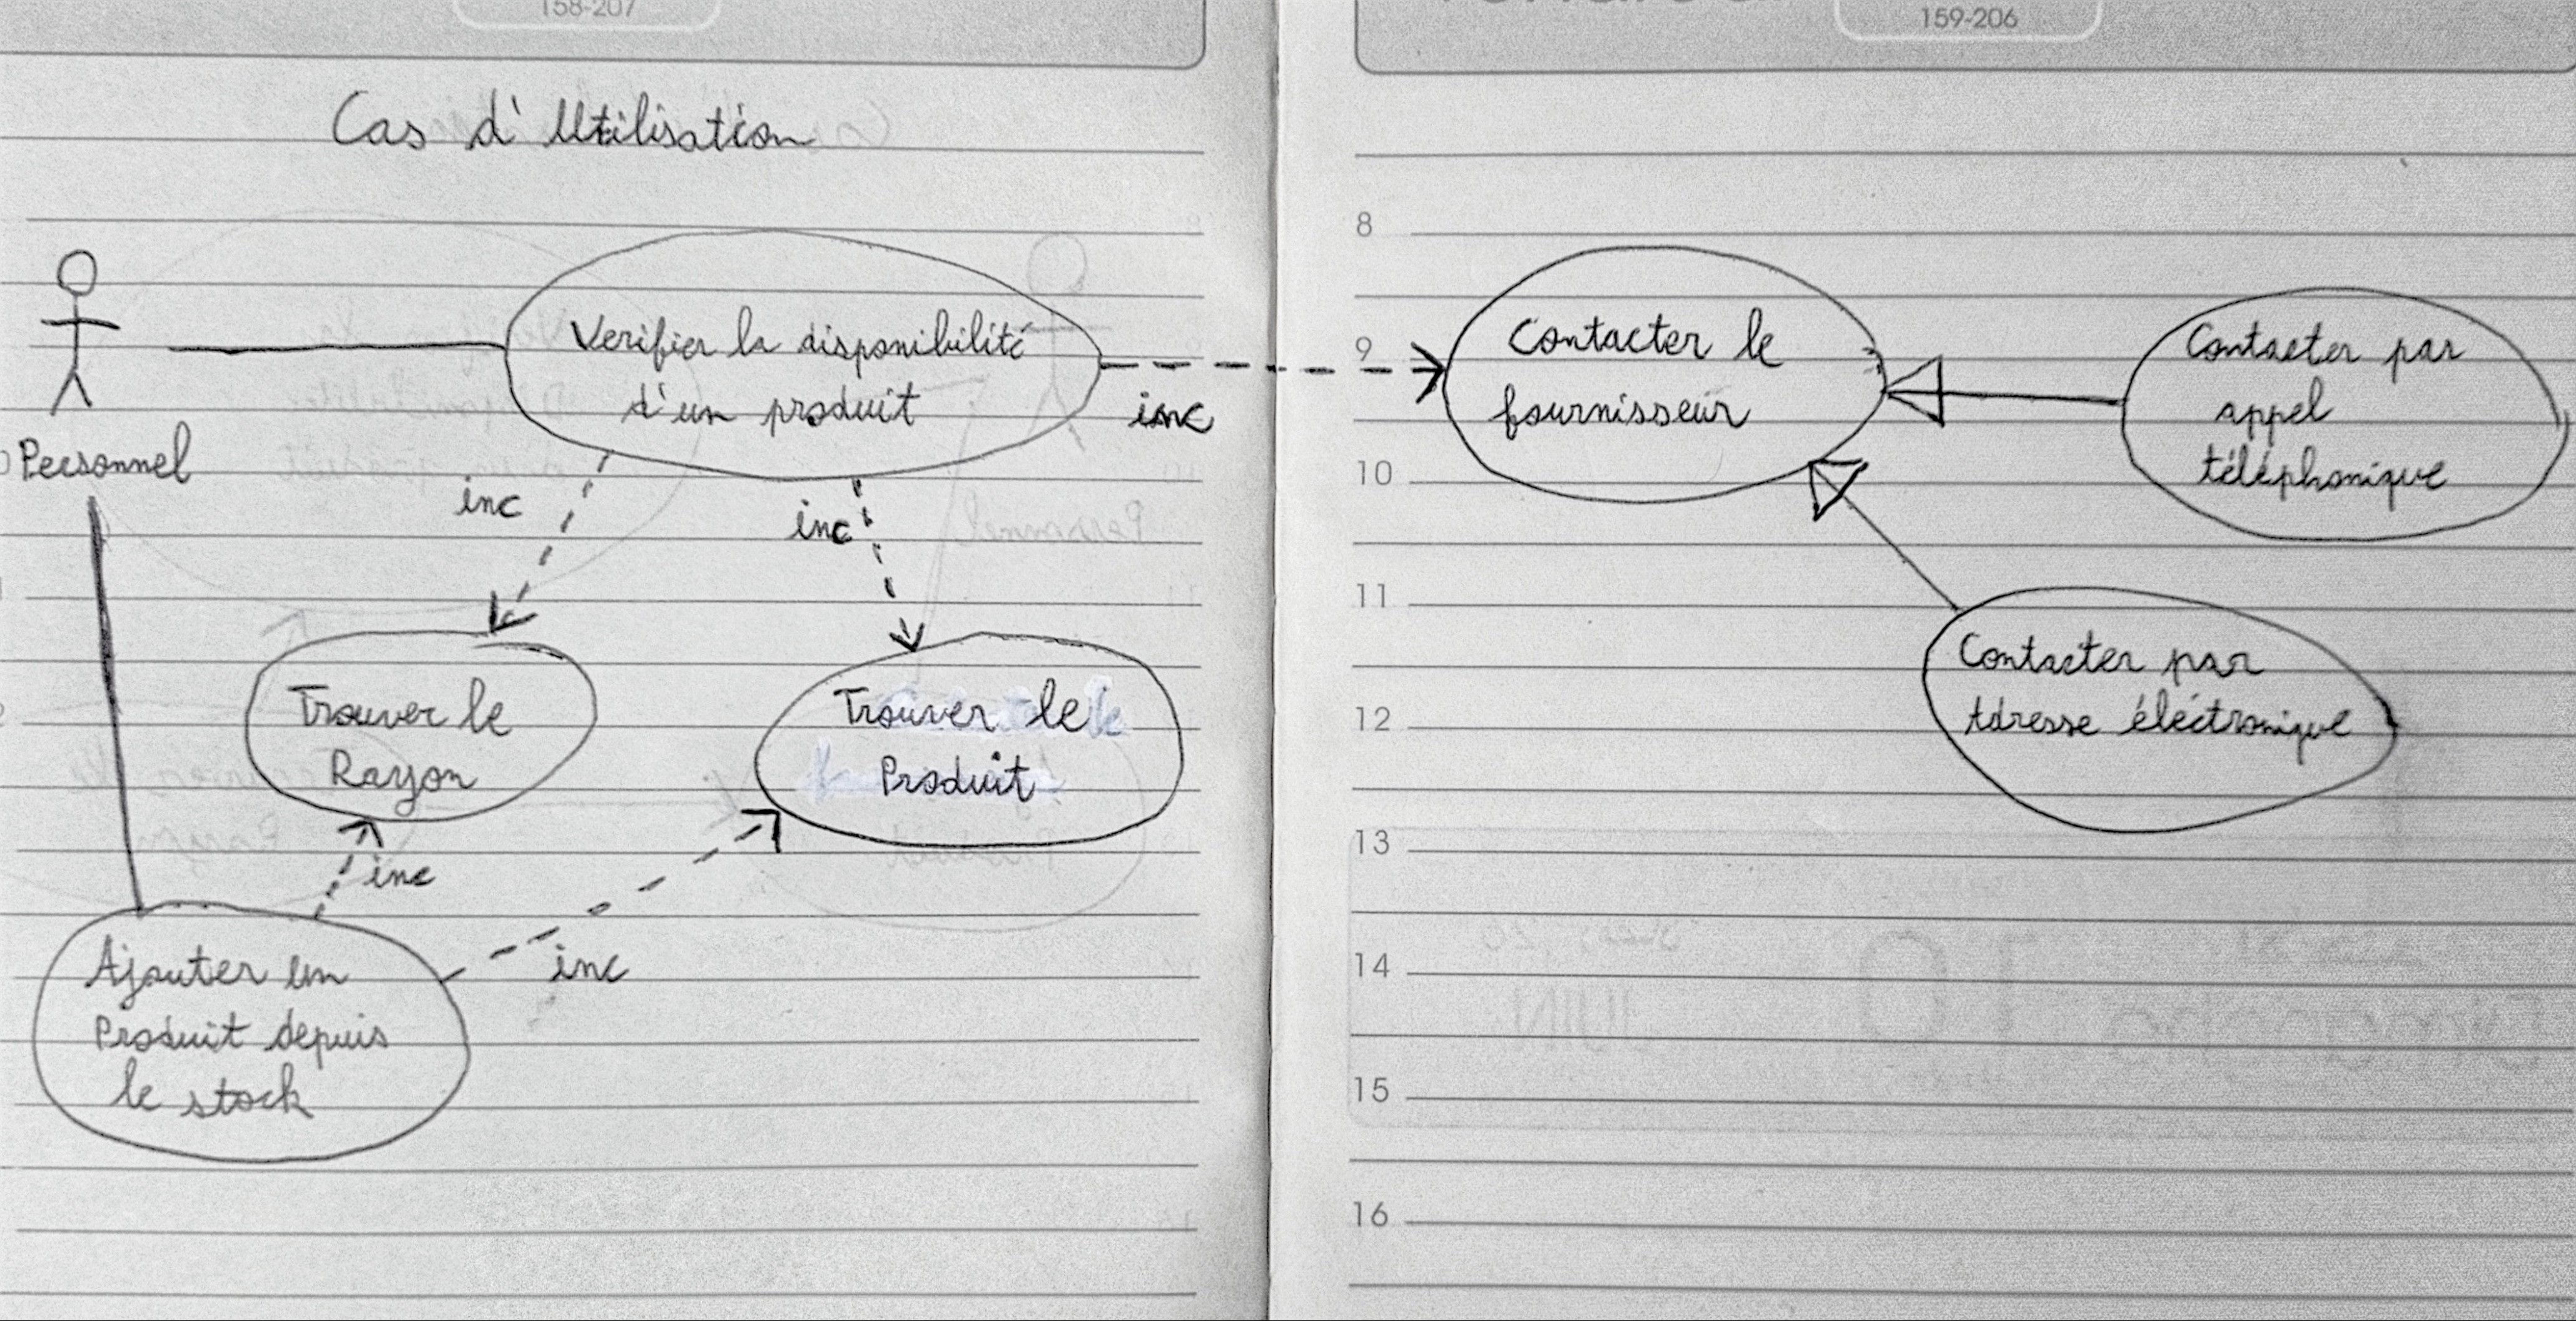 158-207
159-206
Cas d'Utilisation
Personnel
Verifier la disponibilité
d'un produit
inc
inc
inc
Trouver le
Rayon
Trouver le
Produit
inc
inc
Ajouter un
Produit depuis
le stock
8
9
10
11
12
13
14
15
16
Contacter le
fournisseur
Contacter par
appel
téléphonique
Contacter par
Adresse éléctronique